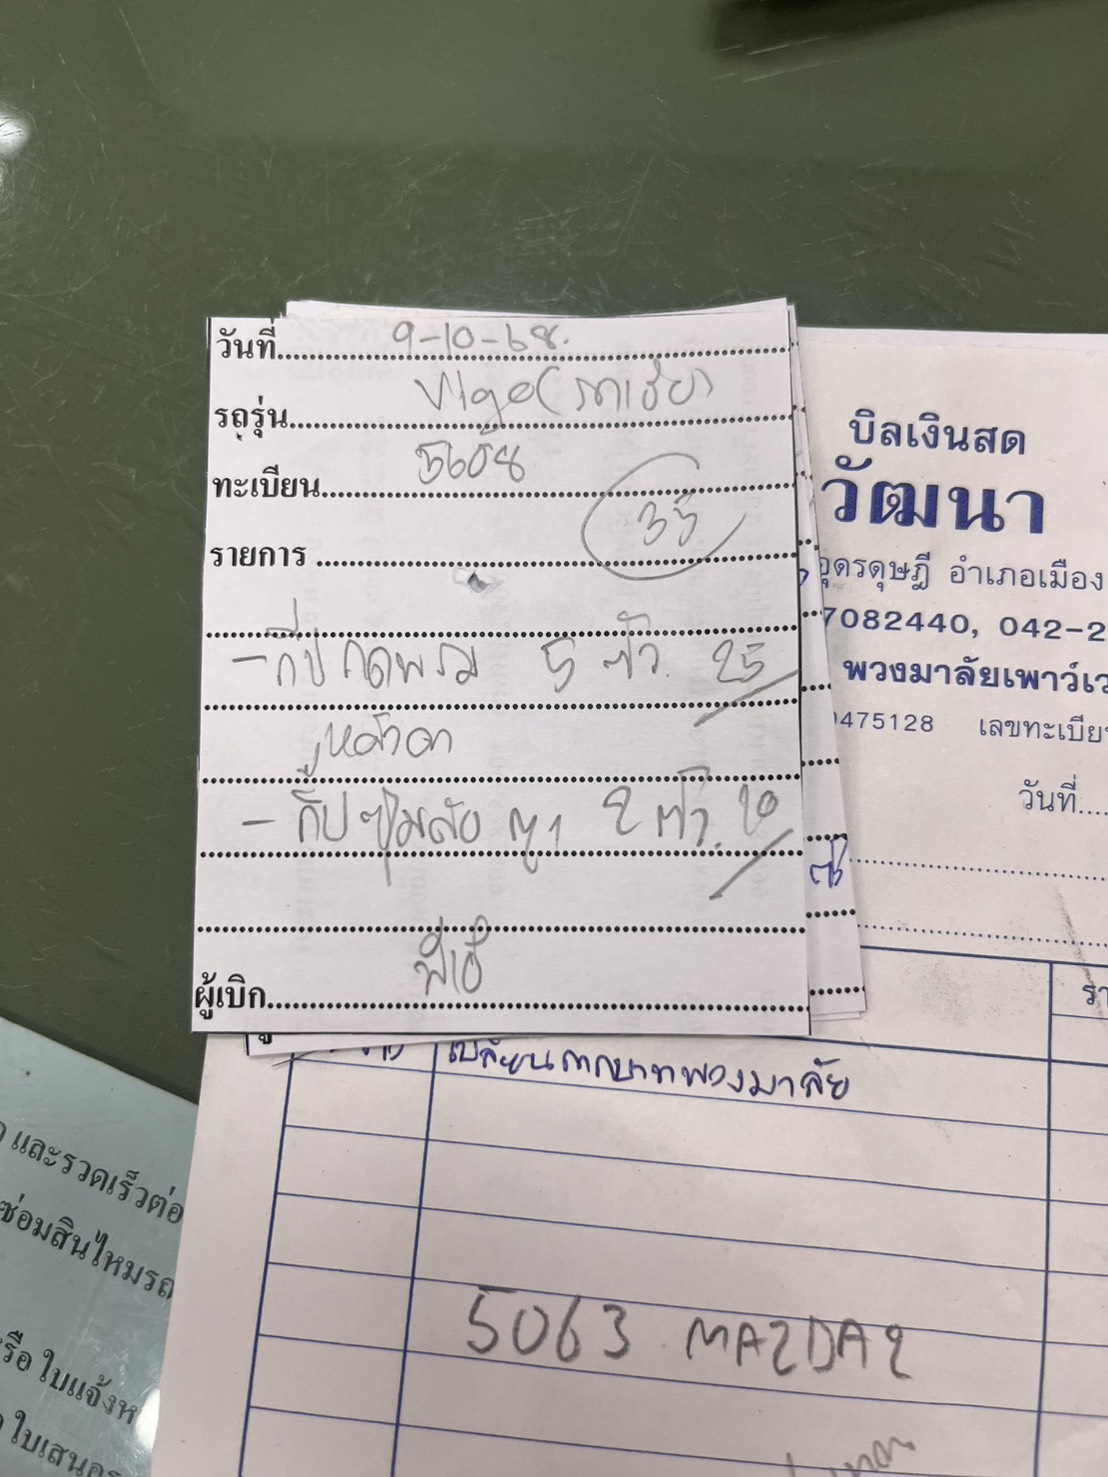 วันที่ 9-10-68.
รถรุ่น Vigo(
ทะเบียน 5608
35
รายการ
- กิ๊ปกดพรม 5 ตัว. 25
หูหลัวดำ
- กิ๊ปซุ้มล้อ 2 ตัว. 10
ผู้เบิก
บิลเงินสด
วัฒนา
อุดรดุษฎี อำเภอเมือง
7082440, 042-2
พวงมาลัยเพาว์เว
0475128 เลขทะเบียน
วันที่
รา
เปลี่ยน พวงมาลัย
5063 MAZDA2
และรวดเร็วต่อ
ซ่อมสินไหมรถ
รือ ใบแจ้งห
ใบเสนอร